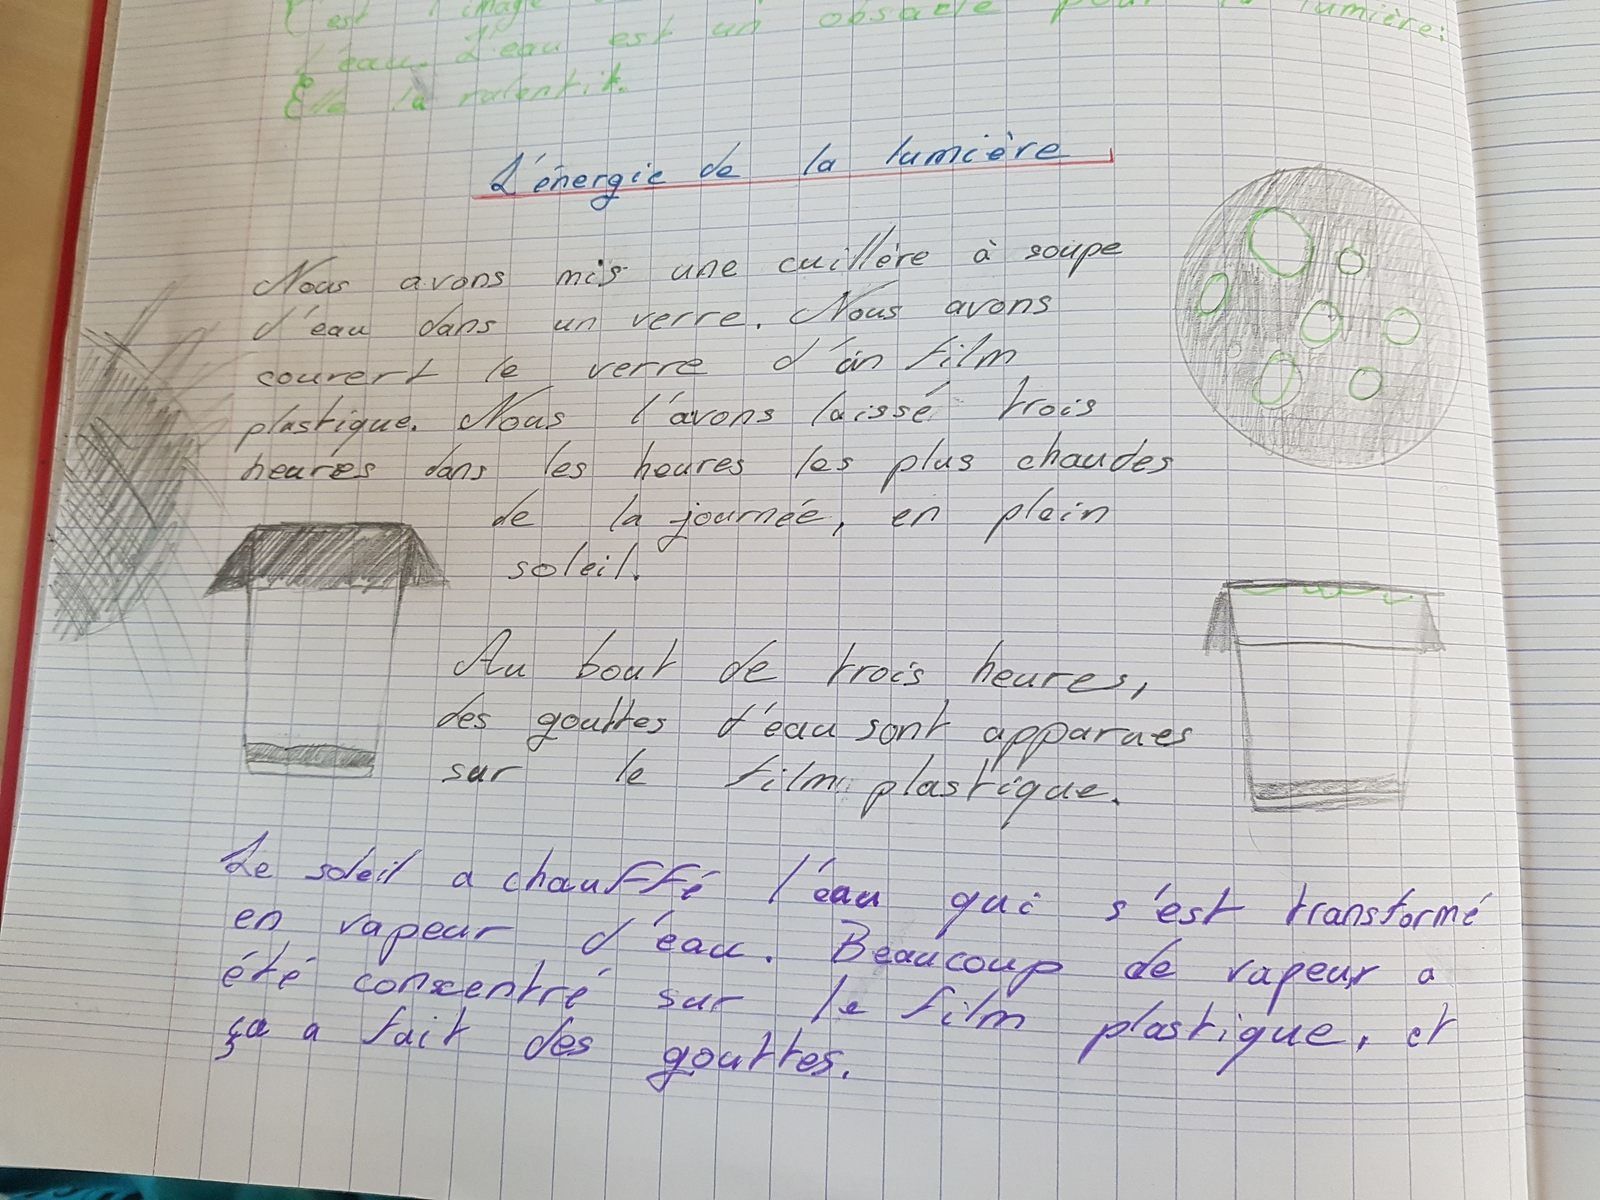 C'est l'image
l'eau. L'eau est un obsacle pour la lumière:
Elle la ralentit.
L'énergie de la lumière
Nous avons mis une cuillère à soupe
d'eau dans un verre. Nous avons
couvert le verre d'un film
plastique. Nous l'avons laissé trois
heures dans les heures les plus chaudes
de la journée, en plein
soleil.
Au bout de trois heures,
des gouttes d'eau sont apparues
sur le film plastique.
Le soleil a chauffé l'eau qui s'est transformé
en vapeur d'eau. Beaucoup de vapeur a
été concentré sur le film plastique, et
ça a fait des gouttes.